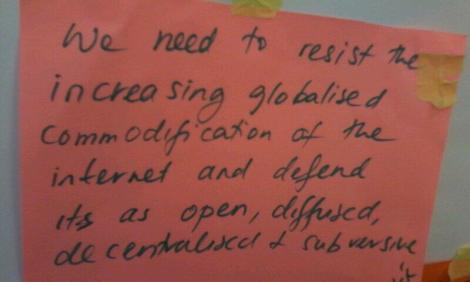 We need to resist the
increasing globalised
commodification of the
internet and defend
its as open, diffused,
decentralised & subversive